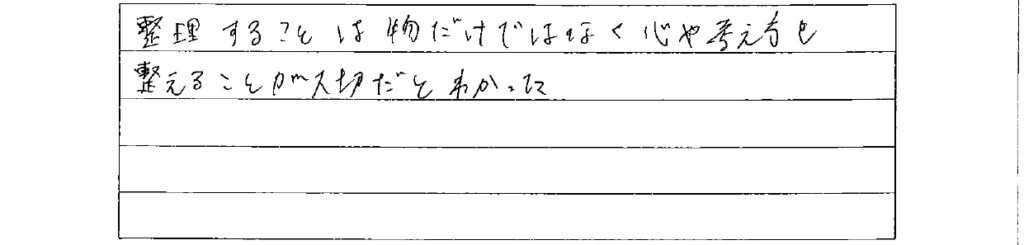 整理することは物だけではなく心や考え方も
整えることが大切だとわかった